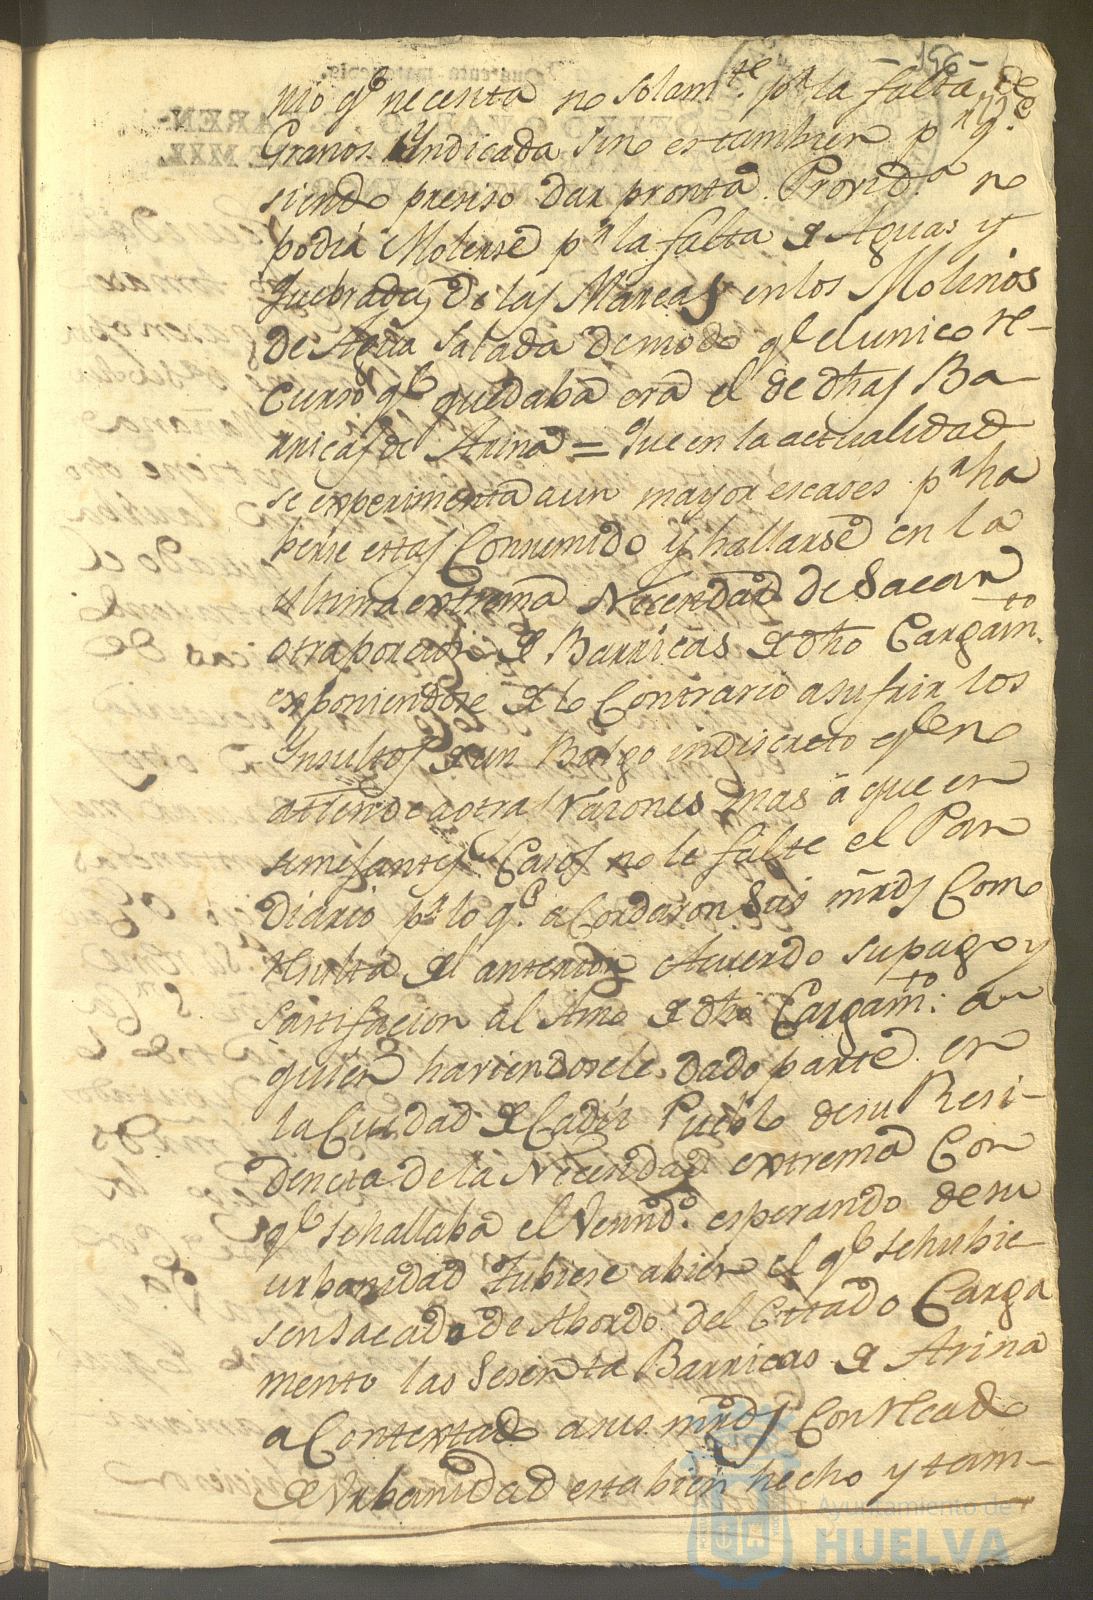 156
nio qe. necesita no solamte. pr. la falta de
Granos Yndicada sino es tambien pr. qe.
siendo presiso dar pronta Provida. no
podia Molerse pr. la falta de Aguas y
quebradas de las Mareas en los Molinos
de Agua Salada de modo qe. el unico re-
curso qe. quedaba era el de dhas Ba
rricas de Arina = Que en la actualidad
se experimenta aun mayor escases pr. ha
berse estas Consumido y hallarse en la
ultima extrema Necesidad de Sacar
otra porcion de Barricas de dho Cargamto.
exponiendose de lo Contrario a sufrir los
Ynsultos de un Bulgo indiscreto qe. no
attiende a otras razones mas á que en
semejantes Casos no le falte el Pan
Diario pr. lo qe. acordaron Sus mrds Como
resulta del anterior Acuerdo su pago y
Satisfacion al Amo de dho Cargamto. a
quien haviendosele dado parte en
la Ciudad de Cadiz Pueblo de su Resi-
dencia de la Necesidad extrema Con
qe. se hallaba el Vecindo. esperando de su
urbanidad tubiese a bien el qe. se hubie-
sen sacado de Abordo del Citado Carga
mento las Sesenta Barricas de Arina
a Contextado a sus mrds Con
de Urbanidad esta bien hecho y tam-
Ayuntamiento de
HUELVA